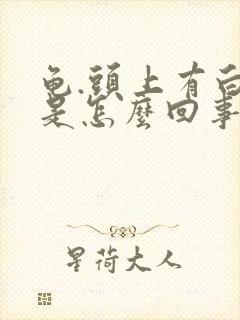 龟.頭上有白
是怎麼回事
星荷大人